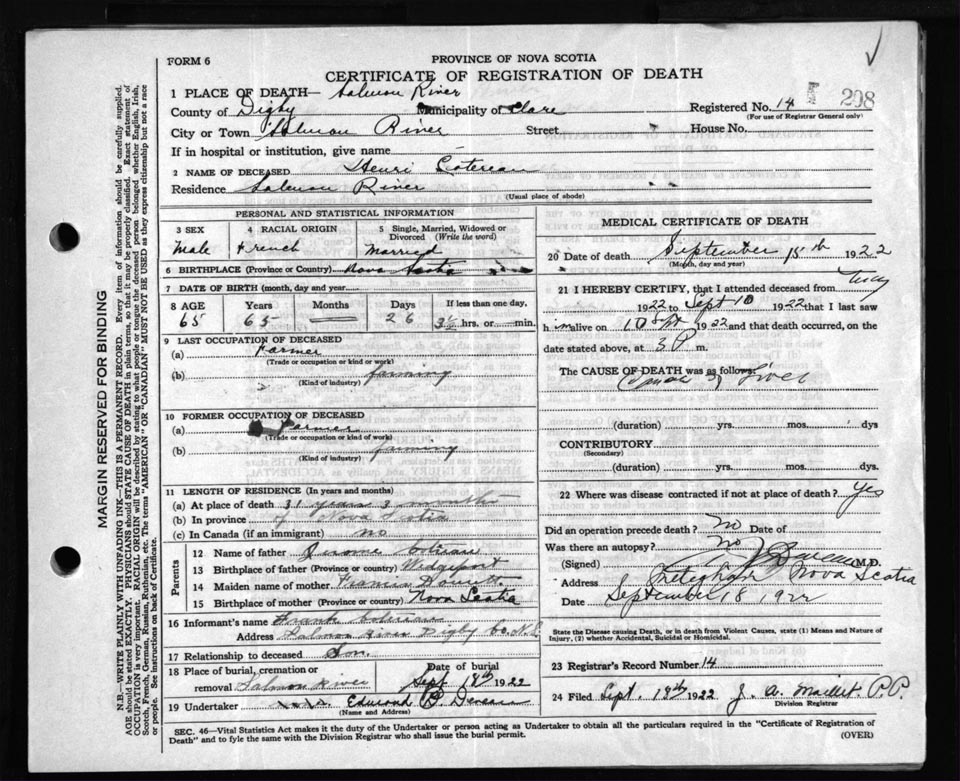 FORM 6
PROVINCE OF NOVA SCOTIA
CERTIFICATE OF REGISTRATION OF DEATH
208
1 PLACE OF DEATH— Salmon River
County of Digby Municipality of Clare Registered No. 14
(For use of Registrar General only)
City or Town Salmon River Street House No.
If in hospital or institution, give name
2 NAME OF DECEASED Henri
Residence Salmon River
(Usual place of abode)
PERSONAL AND STATISTICAL INFORMATION
3 SEX 4 RACIAL ORIGIN 5 Single, Married, Widowed or Divorced (Write the word)
Male French Married
6 BIRTHPLACE (Province or Country) Nova Scotia
7 DATE OF BIRTH (month, day and year)
8 AGE Years Months Days If less than one day,
65 65 — 26 3½ hrs. or min.
9 LAST OCCUPATION OF DECEASED
(a) Farmer
(Trade or occupation or kind of work)
(b) farming
(Kind of industry)
10 FORMER OCCUPATION OF DECEASED
(a) Farmer
(Trade or occupation or kind of work)
(b) farming
(Kind of industry)
11 LENGTH OF RESIDENCE (In years and months)
(a) At place of death 31 years 3 months
(b) In province of Nova Scotia
(c) In Canada (if an immigrant) no
Parents
12 Name of father Jerome
13 Birthplace of father (Province or country) Wedgeport
14 Maiden name of mother
15 Birthplace of mother (Province or country) Nova Scotia
16 Informant's name Frank
Address Salmon River Digby Co. N.S.
17 Relationship to deceased Son.
18 Place of burial, cremation or removal Salmon River Date of burial Sept 18th 1922
19 Undertaker Edmond
(Name and Address)
MEDICAL CERTIFICATE OF DEATH
20 Date of death September 15th 1922
(Month, day and year)
21 I HEREBY CERTIFY, that I attended deceased from
1922 to Sept 10 1922 that I last saw
him alive on 10 Sept 1922 and that death occurred, on
date stated above, at 3 P m.
The CAUSE OF DEATH was as follows:
of Liver
(duration) yrs. mos. dys
CONTRIBUTORY
(Secondary)
(duration) yrs. mos. dys.
22 Where was disease contracted if not at place of death? yes
Did an operation precede death? no Date of
Was there an autopsy? no
(Signed) M.D.
Address Nova Scotia
Date September 18 1922
State the Disease causing Death, or in death from Violent Causes, state (1) Means and Nature of
Injury, (2) whether Accidental, Suicidal or Homicidal.
23 Registrar's Record Number 14
24 Filed Sept. 18th 1922 J. A. Maillet P.P.
Division Registrar
SEC. 46—Vital Statistics Act makes it the duty of the Undertaker or person acting as Undertaker to obtain all the particulars required in the "Certificate of Registration of
Death" and to fyle the same with the Division Registrar who shall issue the burial permit.
(OVER)
MARGIN RESERVED FOR BINDING
N.B.—WRITE PLAINLY WITH UNFADING INK—THIS IS A PERMANENT RECORD. Every item of information should be carefully supplied.
AGE should be stated EXACTLY. PHYSICIANS should STATE CAUSE OF DEATH in plain terms, so that it may be properly classified. Exact statement of
OCCUPATION is very important. RACIAL ORIGIN will be described by stating to what people or tongue the deceased person belonged whether English, Irish,
Scotch, French, German, Russian, Ruthenian, etc. The terms "AMERICAN" OR "CANADIAN" MUST NOT BE USED as they express citizenship but not a race
or people. See instructions on back of Certificate.